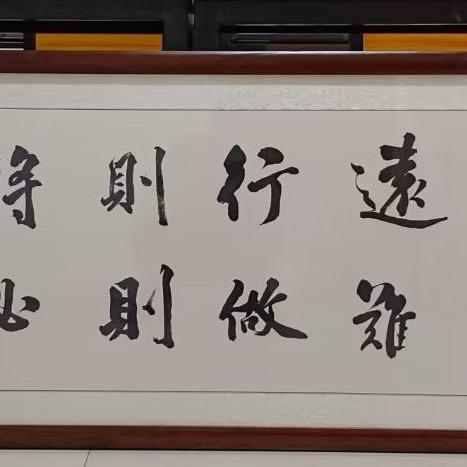 遠行則将
難做則必